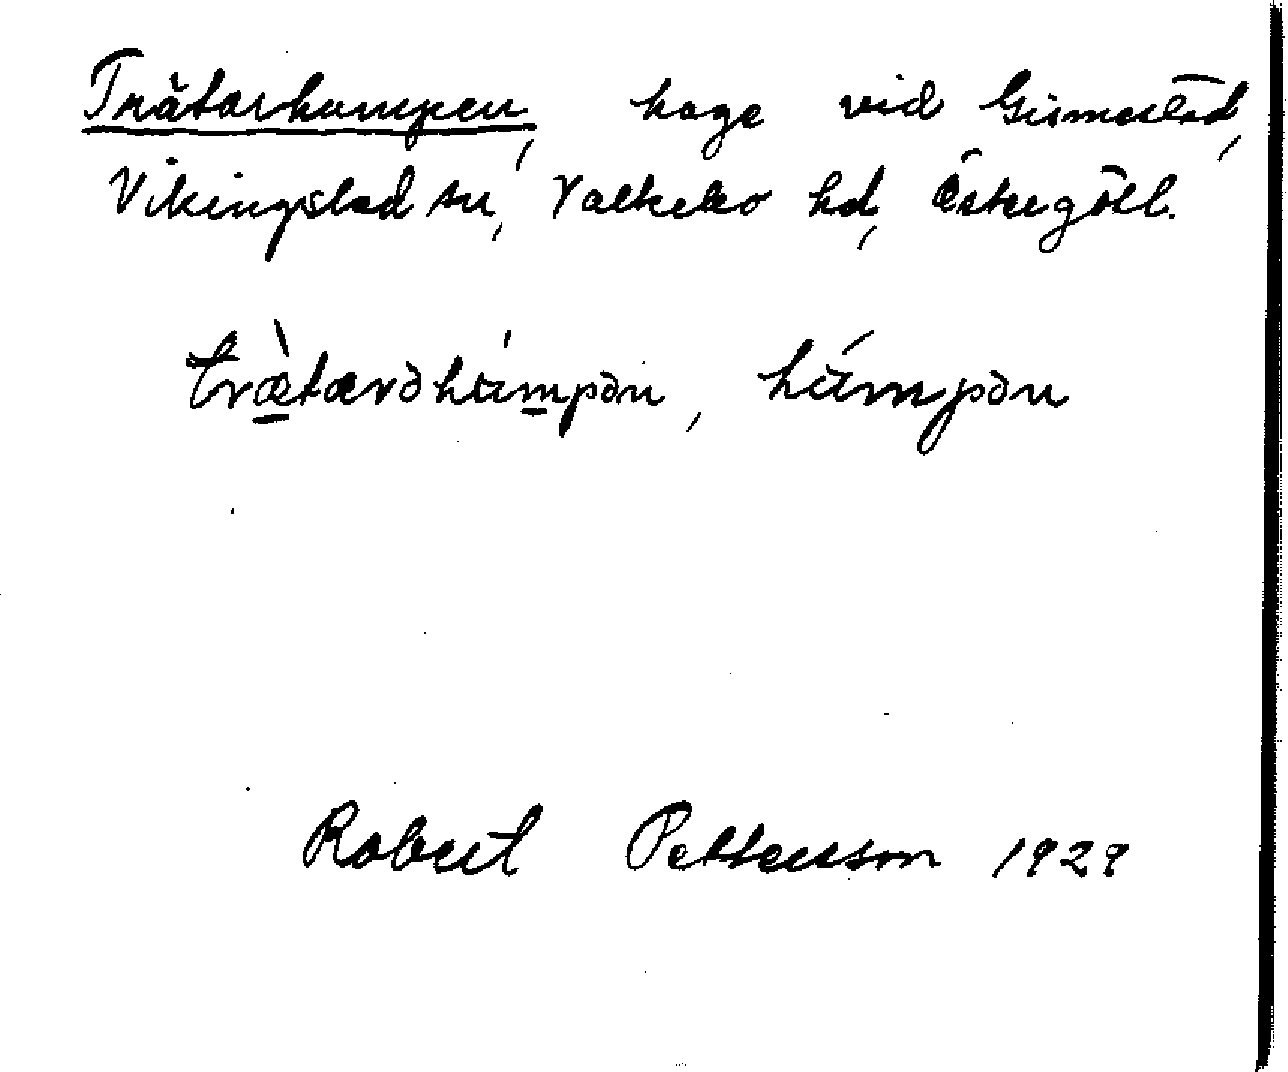 Trätarhumpen, hage vid Gismestad,
Vikingstad sn, Valkebo hd, Östergötl.
træ̀tærəhúmpən, húmpən
Robert Pettersson 1929